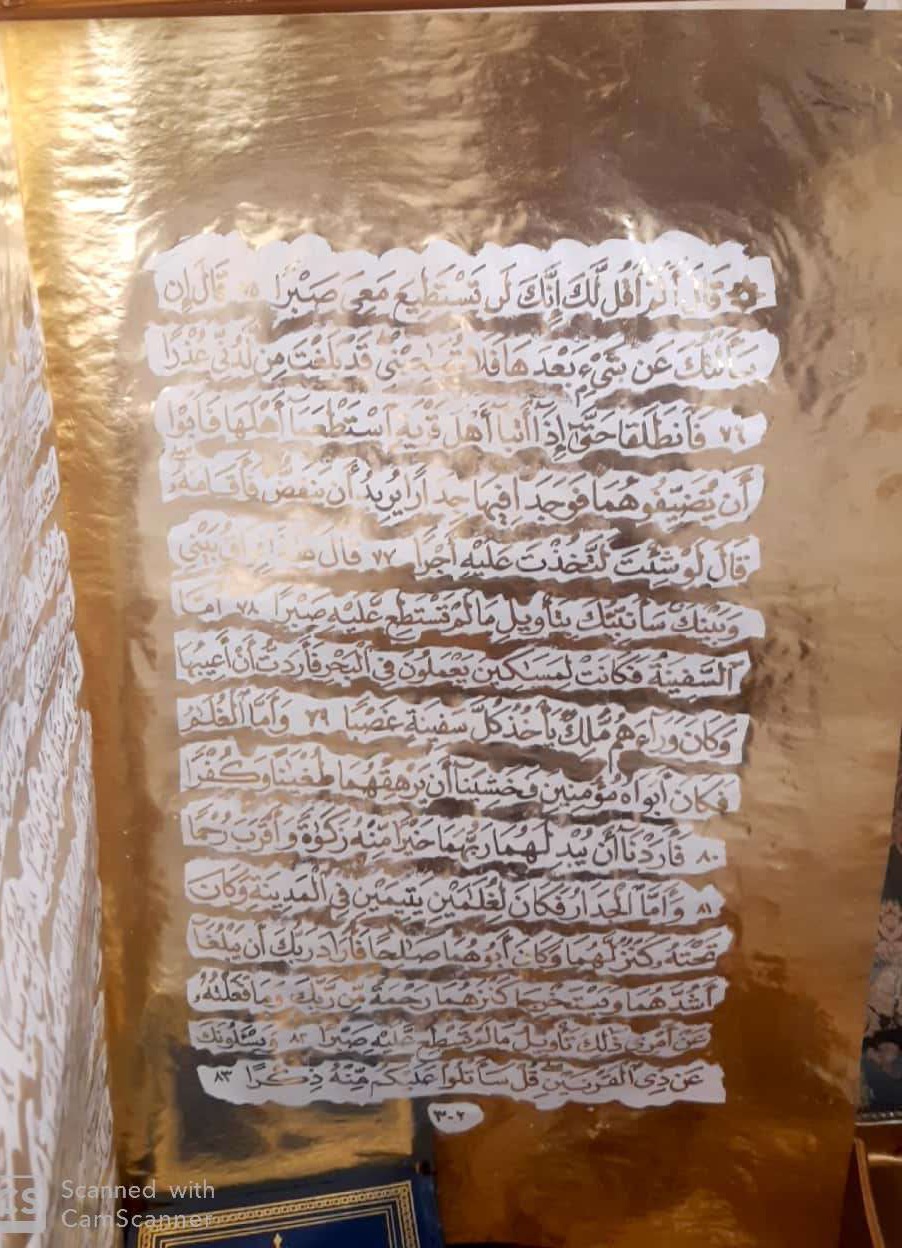 ۞ قَالَ أَلَمْ أَقُل لَّكَ إِنَّكَ لَن تَسْتَطِيعَ مَعِيَ صَبْرًا ٧٥ قَالَ إِن
سَأَلْتُكَ عَن شَيْءٍ بَعْدَهَا فَلَا تُصَٰحِبْنِي قَدْ بَلَغْتَ مِن لَّدُنِّي عُذْرًا
٧٦ فَٱنطَلَقَا حَتَّىٰٓ إِذَآ أَتَيَآ أَهْلَ قَرْيَةٍ ٱسْتَطْعَمَآ أَهْلَهَا فَأَبَوْا
أَن يُضَيِّفُوهُمَا فَوَجَدَا فِيهَا جِدَارًا يُرِيدُ أَن يَنقَضَّ فَأَقَامَهُۥ
قَالَ لَوْ شِئْتَ لَتَّخَذْتَ عَلَيْهِ أَجْرًا ٧٧ قَالَ هَٰذَا فِرَاقُ بَيْنِي
وَبَيْنِكَ سَأُنَبِّئُكَ بِتَأْوِيلِ مَا لَمْ تَسْتَطِع عَّلَيْهِ صَبْرًا ٧٨ أَمَّا
ٱلسَّفِينَةُ فَكَانَتْ لِمَسَٰكِينَ يَعْمَلُونَ فِي ٱلْبَحْرِ فَأَرَدتُّ أَنْ أَعِيبَهَا
وَكَانَ وَرَآءَهُم مَّلِكٌ يَأْخُذُ كُلَّ سَفِينَةٍ غَصْبًا ٧٩ وَأَمَّا ٱلْغُلَٰمُ
فَكَانَ أَبَوَاهُ مُؤْمِنَيْنِ فَخَشِينَآ أَن يُرْهِقَهُمَا طُغْيَٰنًا وَكُفْرًا
٨٠ فَأَرَدْنَآ أَن يُبْدِلَهُمَا رَبُّهُمَا خَيْرًا مِّنْهُ زَكَوٰةً وَأَقْرَبَ رُحْمًا
٨١ وَأَمَّا ٱلْجِدَارُ فَكَانَ لِغُلَٰمَيْنِ يَتِيمَيْنِ فِي ٱلْمَدِينَةِ وَكَانَ
تَحْتَهُۥ كَنزٌ لَّهُمَا وَكَانَ أَبُوهُمَا صَٰلِحًا فَأَرَادَ رَبُّكَ أَن يَبْلُغَآ
أَشُدَّهُمَا وَيَسْتَخْرِجَا كَنزَهُمَا رَحْمَةً مِّن رَّبِّكَ وَمَا فَعَلْتُهُۥ
عَنْ أَمْرِي ذَٰلِكَ تَأْوِيلُ مَا لَمْ تَسْطِع عَّلَيْهِ صَبْرًا ٨٢ وَيَسْـَٔلُونَكَ
عَن ذِي ٱلْقَرْنَيْنِ قُلْ سَأَتْلُوا عَلَيْكُم مِّنْهُ ذِكْرًا ٨٣
٣٠٢
Scanned with
CamScanner